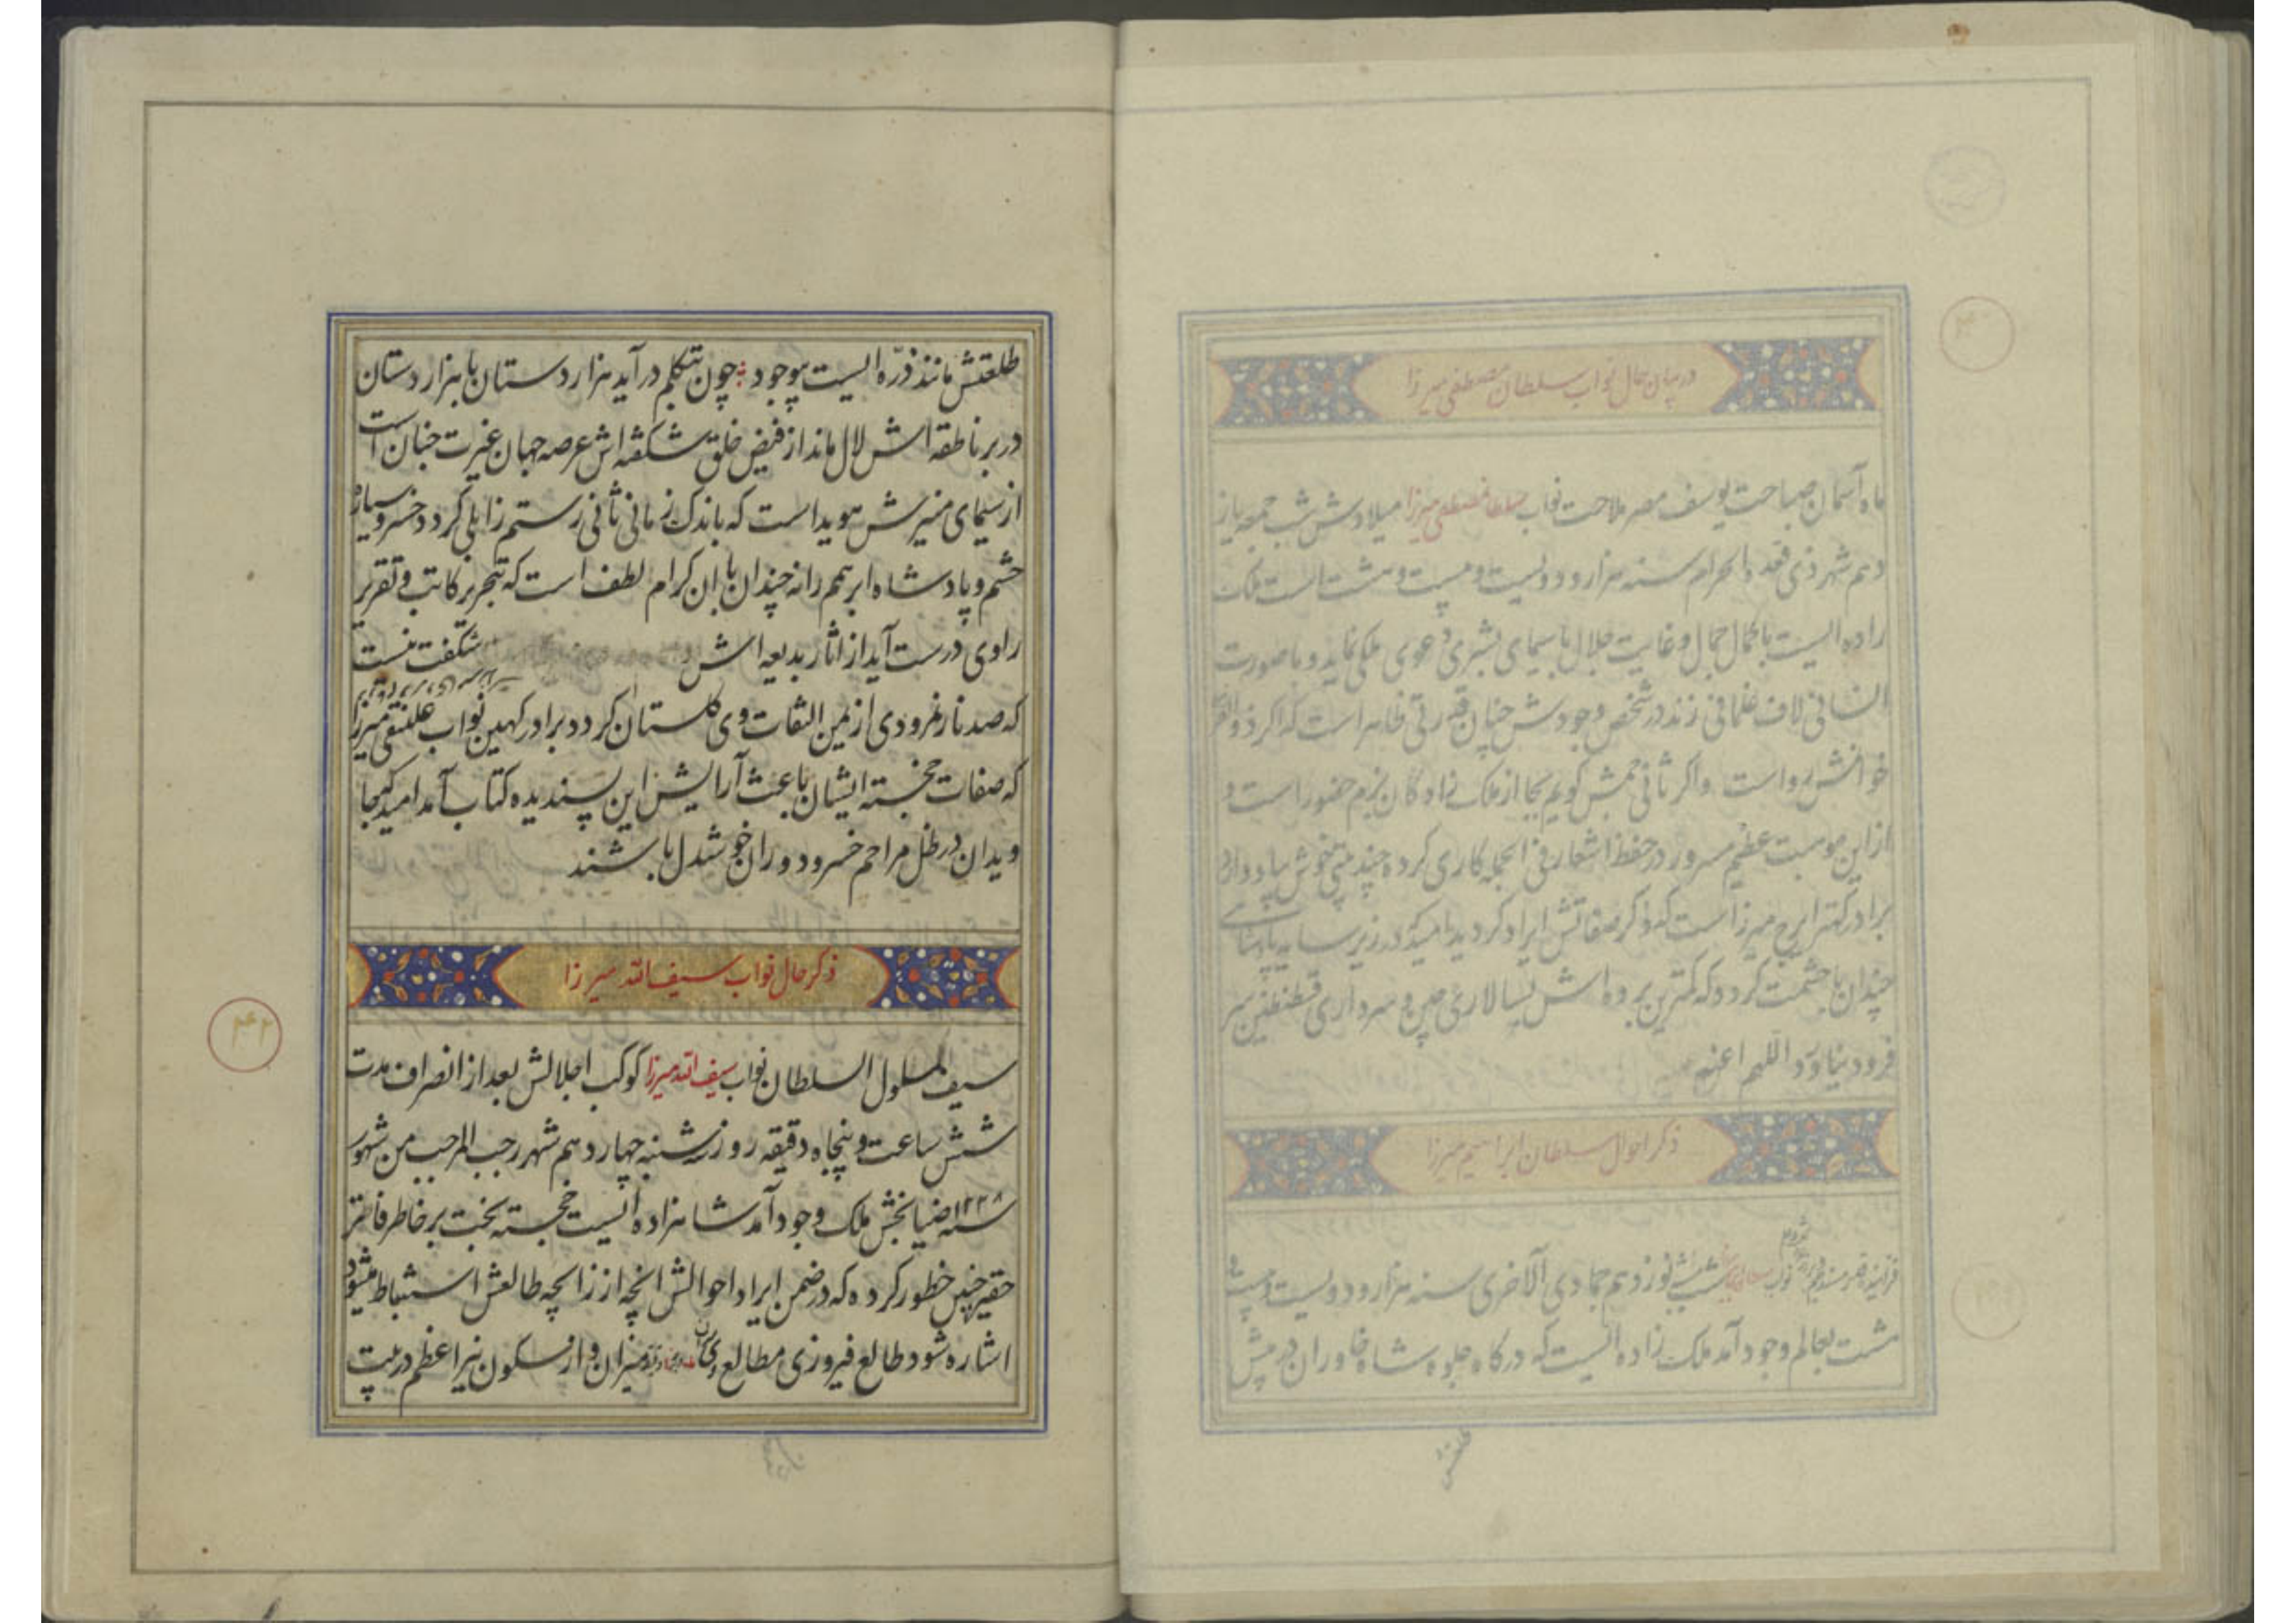 در بیان حال نواب سلطان مصطفی میرزا
ماه آسمان صباحت یوسف مصر ملاحت نواب سلطان مصطفی میرزا میلادش شب جمعه یاز
دهم شهر ذی قعده الحرام سنه هزار و دویست و بیست و هشت است ملک
زاده ایست با کمال جمال و غایت جلال با سیمای بشری دعوی ملکی نماید و با صورت
انسانی لاف غلمانی زند در شخص وجودش چنان قدرتی ظاهر است که اگر
خوانمش رواست و اگر ثانی جمش گویم بجا از ملک زادگان بزم حضور است و
از این موهبت عظیم مسرور در حفظ اشعار فی الجمله کاری کرده چند بیتی خوش
برادر کهتر ایرج میرزا است که ذکر صفاتش ایراد گردید امید که در زیر سایه
چندان با حشمت گردد که کمترین برده اش بسالاری چین و سرداری قسطنطین سر
فرود نیاورد اللهم
ذکر احوال سلطان ابراهیم میرزا
نواب شب نوزدهم جمادی الآخری سنه هزار و دویست و بیست و
هشت بعالم وجود آمد ملک زاده ایست که در گاه جلوه شاه خاوران در پیش
طلعتش
طلعتش مانند ذره ایست بیوجود چون بتکلم درآید هزاردستان با هزار دستان
در بر ناطقه اش لال ماند از فیض خلق شکفته اش عرصه جهان غیرت جنان است
از سیمای منیرش هویداست که باندک زمانی ثانی رستم زابلی گردد خسرو سیاره
حشم و پادشاه ابر همم رانه چندان با آن کرام لطف است که بتحریر کاتب و تقریر
راوی درست آید از آثار بدیعه اش شگفت نیست
که صد نار نمرودی از یمن التفات وی گلستان گردد برادر کهین نواب علینقی میرزا
که صفات خجسته ایشان باعث آرایش این پسندیده کتاب آمد امید که جا
ویدان در ظل مراحم خسرو دوران خوشدل باشند
ذکر حال نواب سیف الله میرزا
سیف المسلول السلطان نواب سیف الله میرزا کوکب اجلالش بعد از انصراف مدت
شش ساعت و پنجاه دقیقه روز شنبه چهاردهم شهر رجب المرجب من شهور
سنه ۱۲۲۸ ضیابخش ملک وجود آمد شاهزاده ایست خجسته بخت بر خاطر فاتر
حقیر چنین خطور کرده که در ضمن ایراد احوالش آنچه از زایچه طالعش استنباط میشود
اشاره شود طالع فیروزی مطالع وی میزان و از سکون نیر اعظم در بیت
۴۲